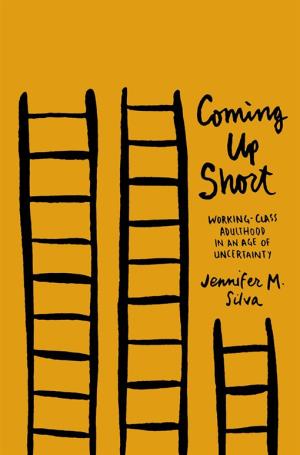 Coming
Up
Short
WORKING-CLASS
ADULTHOOD
IN AN AGE OF
UNCERTAINTY
Jennifer M.
Silva